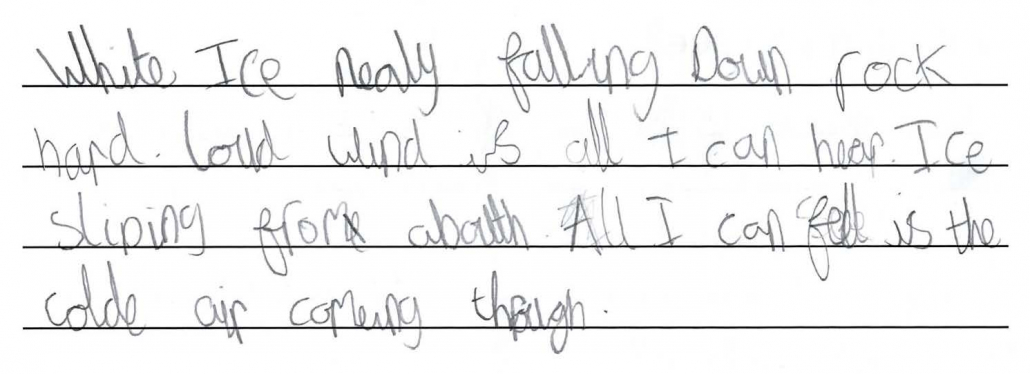 White Ice nealy falling Down rock
hard. Loud wind is all I can hear. Ice
sliping from abouth. All I can fell is the
colde air comeing though.